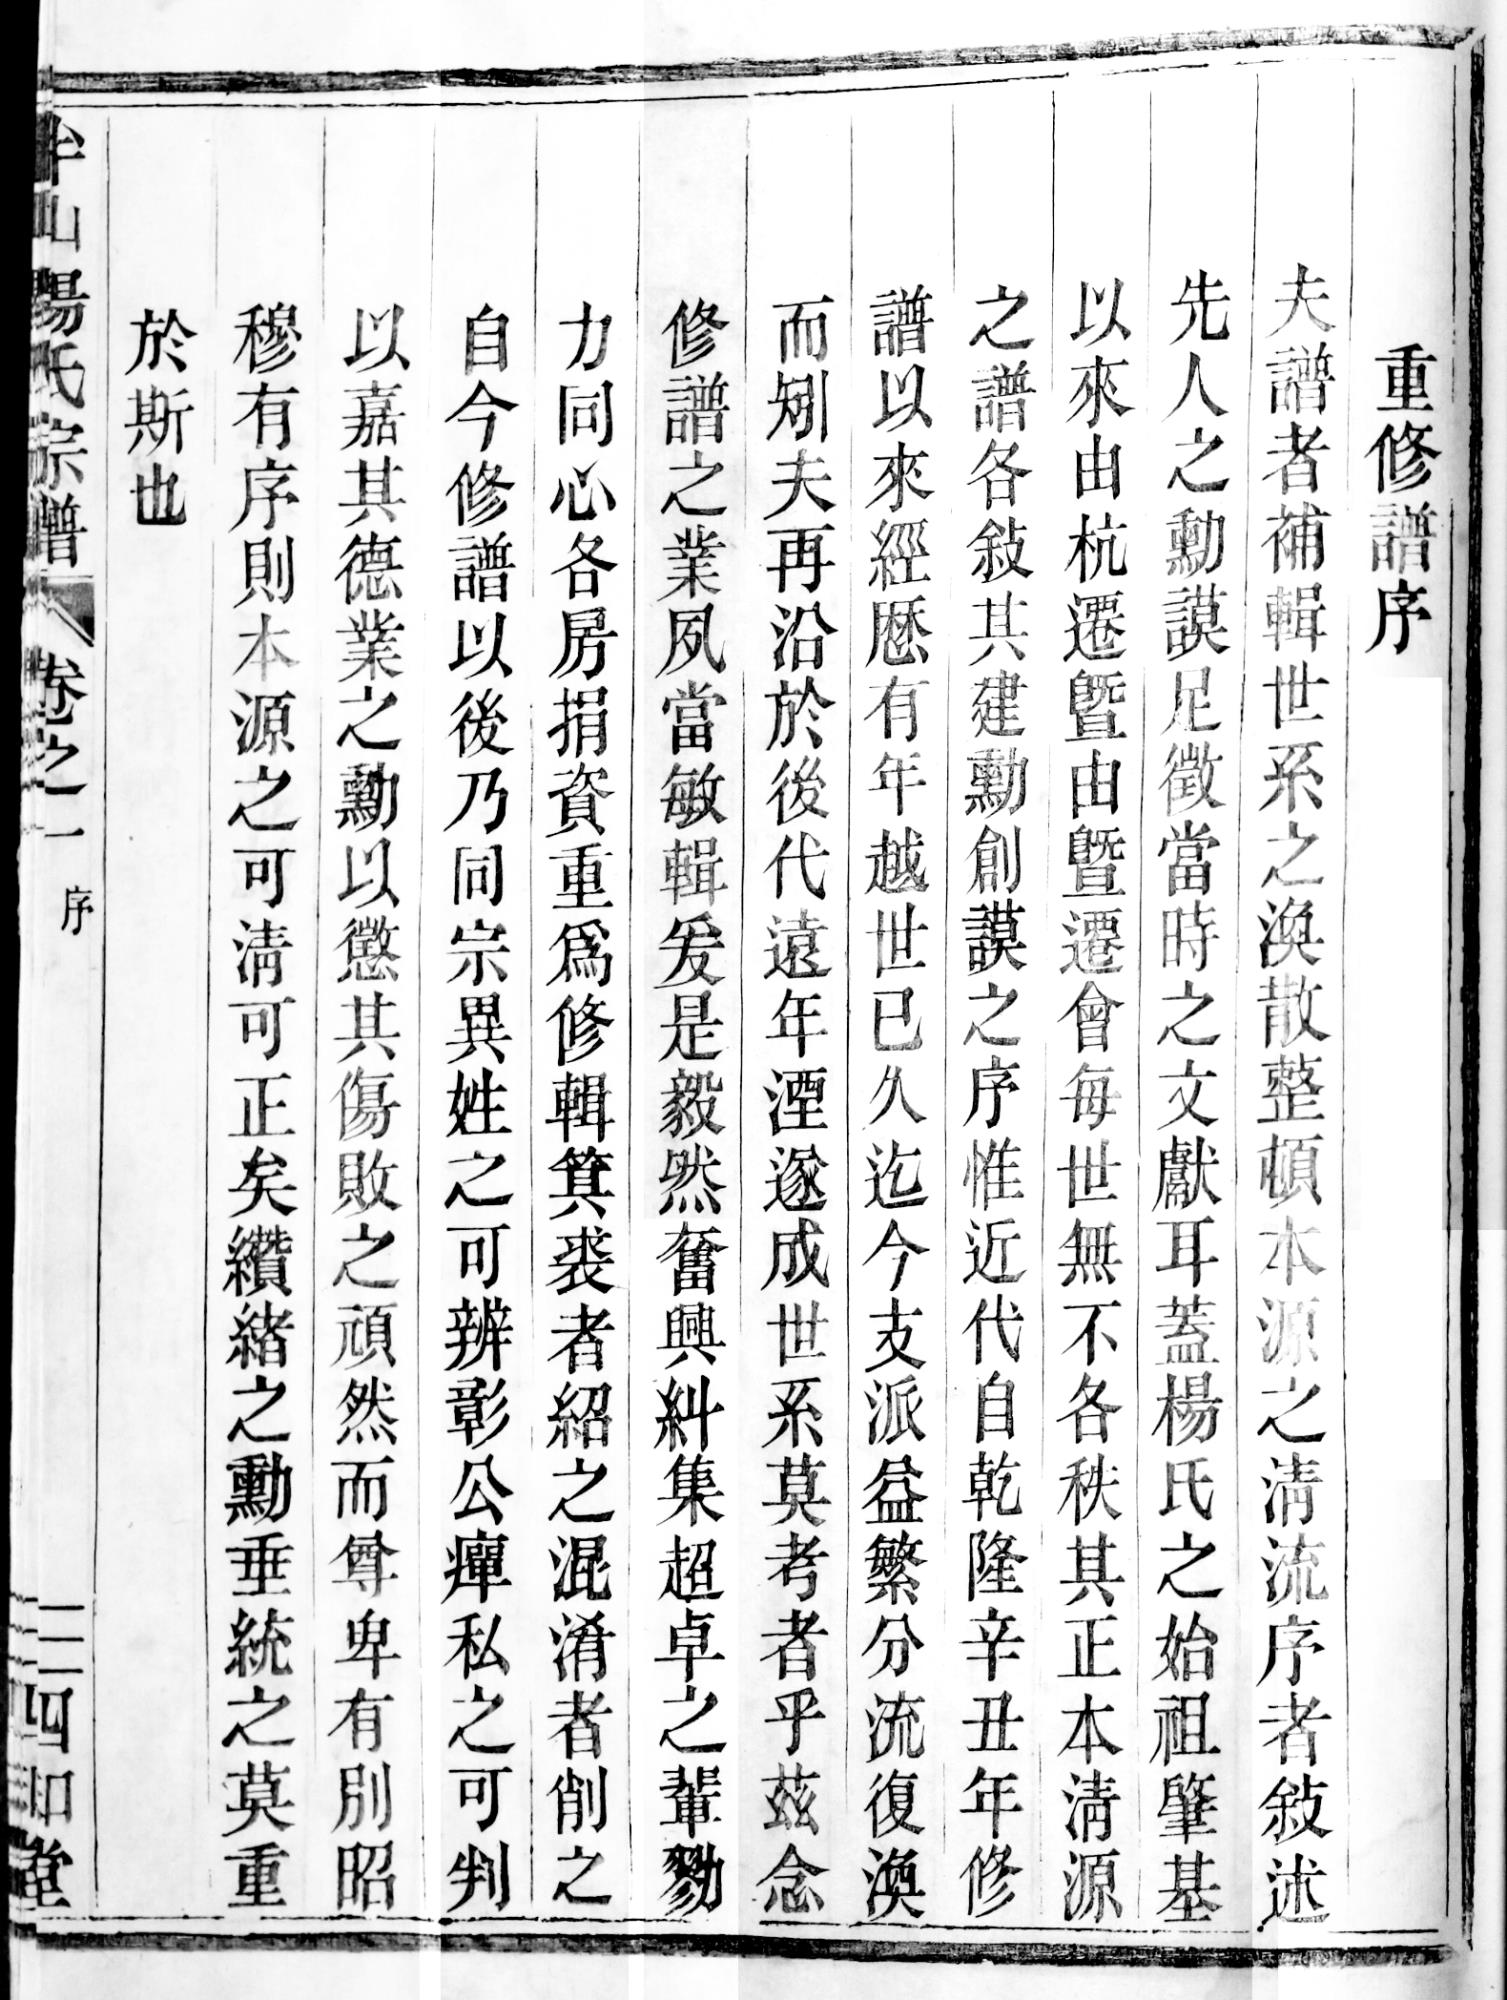 重修譜序
夫譜者補輯世系之渙散整頓本源之清流序者敍述
先人之勳謨足徵當時之文獻耳蓋楊氏之始祖肇基
以來由杭遷暨由暨遷會每世無不各秩其正本清源
之譜各敍其建勳創謨之序惟近代自乾隆辛丑年修
譜以來經歷有年越世已久迄今支派益繁分流復渙
而矧夫再沿於後代遠年湮遂成世系莫考者乎茲念
修譜之業夙當敏輯爰是毅然奮興糾集超卓之輩勠
力同心各房捐資重爲修輯箕裘者紹之混淆者削之
自今修譜以後乃同宗異姓之可辨彰公癉私之可判
以嘉其德業之勳以懲其傷敗之頑然而尊卑有別昭
穆有序則本源之可淸可正矣纘緒之勳垂統之莫重
於斯也
山陽氏宗譜 卷之一 序 四知堂